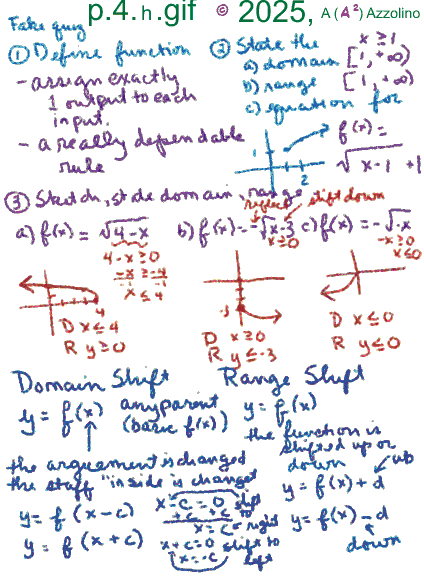 p.4.h.gif © 2025, A (A²) Azzolino
Fake quiz
① Define function
- assign exactly
1 output to each
input.
- a really dependable
rule
② State the x ≥ 1
a) domain [1, +∞)
b) range [1, +∞)
c) equation for
f(x) =
√x-1 +1
1
2
③ Sketch, state domain, range
reflect shift down
a) f(x) = √4-x b) f(x) = -√x-3 c) f(x) = -√-x
4-x ≥ 0 x ≥ 0 -x ≥ 0
-x ≥ -4 x ≤ 0
-1 -1
x ≤ 4
4 -3
D x ≤ 4 D x ≥ 0 D x ≤ 0
R y ≥ 0 R y ≤ -3 R y ≤ 0
Domain Shift
y = f(x) any parent
(basic f(x))
the arguement is changed
the stuff "inside is changed
y = f (x-c) x-c = 0 shift
+c +c to
x = c right
y = f (x+c) x+c = 0 shift to
x = -c left
Range Shift
y = f(x)
the function is
shifted up or
down up
y = f(x) + d
y = f(x) - d
down